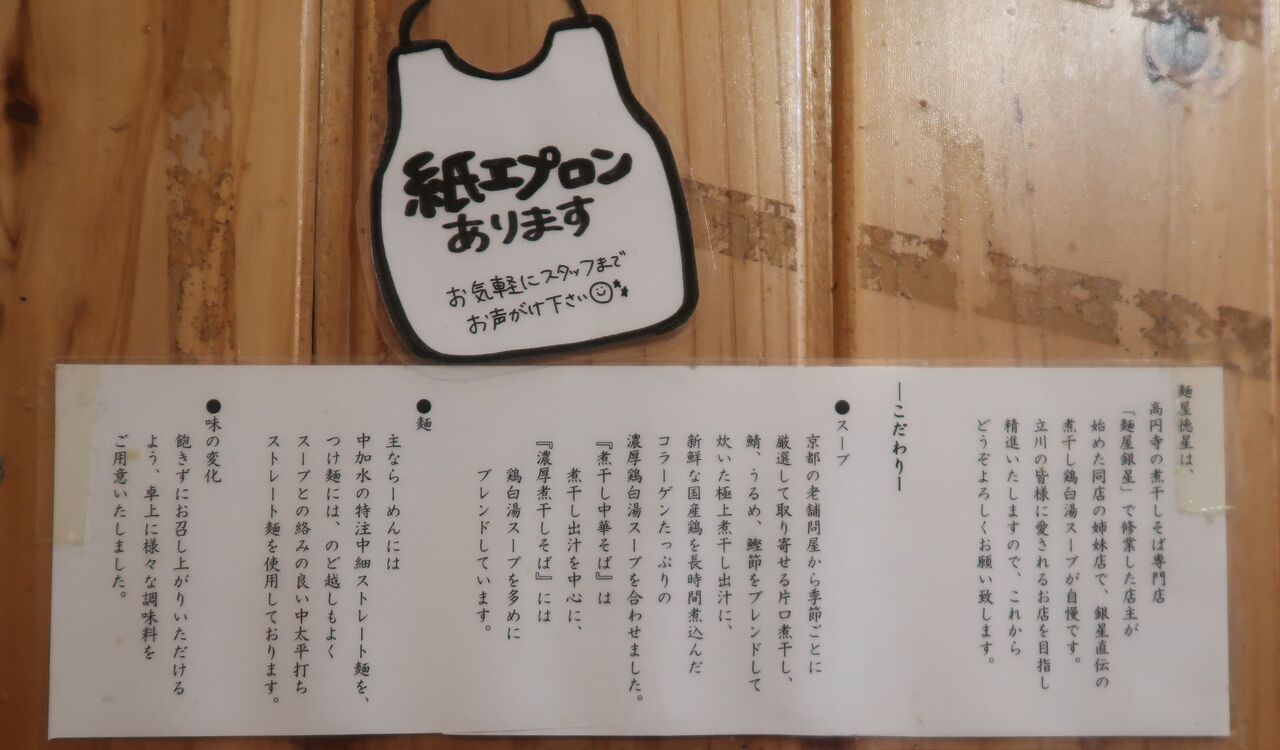 紙エプロン
あります
お気軽にスタッフまで
お声がけ下さい
麺屋徳星は、
高円寺の煮干しそば専門店
「麺屋銀星」で修業した店主が
始めた同店の姉妹店で、銀星直伝の
煮干し鶏白湯スープが自慢です。
立川の皆様に愛されるお店を目指し
精進いたしますので、これから
どうぞよろしくお願い致します。
―こだわり―
●スープ
京都の老舗問屋から季節ごとに
厳選して取り寄せる片口煮干し、
鯖、うるめ、鰹節をブレンドして
炊いた極上煮干し出汁に、
新鮮な国産鶏を長時間煮込んだ
コラーゲンたっぷりの
濃厚鶏白湯スープを合わせました。
『煮干し中華そば』は
煮干し出汁を中心に、
『濃厚煮干しそば』には
鶏白湯スープを多めに
ブレンドしています。
●麺
主ならーめんには
中加水の特注中細ストレート麺を、
つけ麺には、のど越しもよく
スープとの絡みの良い中太平打ち
ストレート麺を使用しております。
●味の変化
飽きずにお召し上がりいただける
よう、卓上に様々な調味料を
ご用意いたしました。